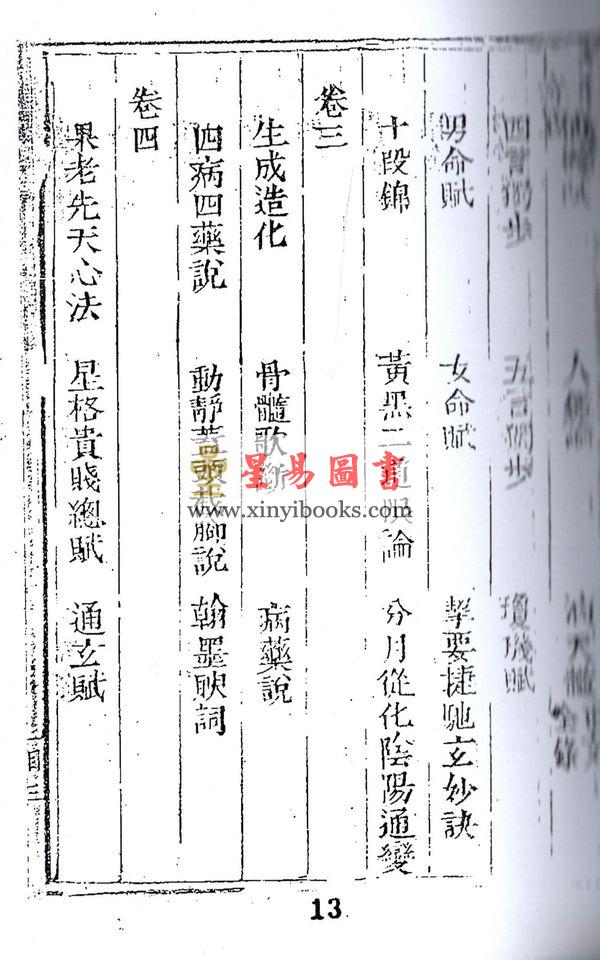 四言獨步 五言獨步 瓊璣賦
男命賦 女命賦 挈要捷馳玄妙訣
十段錦 黃黑二道 論 分月從化陰陽通變
卷三
生成造化 骨髓歌斷 病藥說
四病四藥說 動靜蓋頭 脚說 翰墨映詞
卷四
果老先天心法 星格貴賤總賦 通玄賦
目 三
星易圖書
www.xinyibooks.com
13